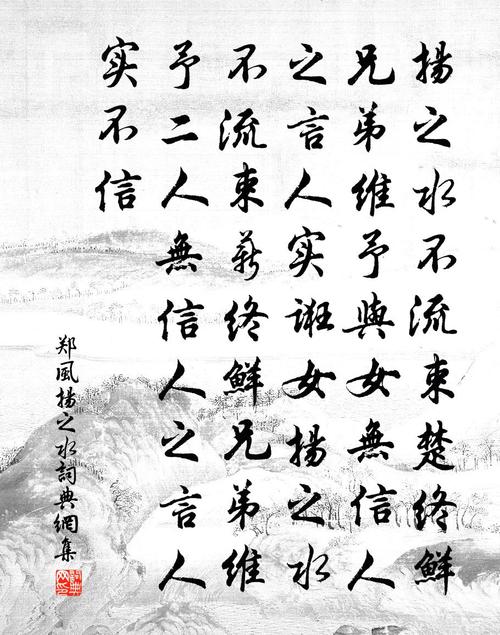 揚之水不流束楚终鮮
兄弟維予與女無信人
之言人实誑女揚之水
不流束薪终鮮兄弟維
予二人無信人之言人
实不信
郑風揚之水詞典網集